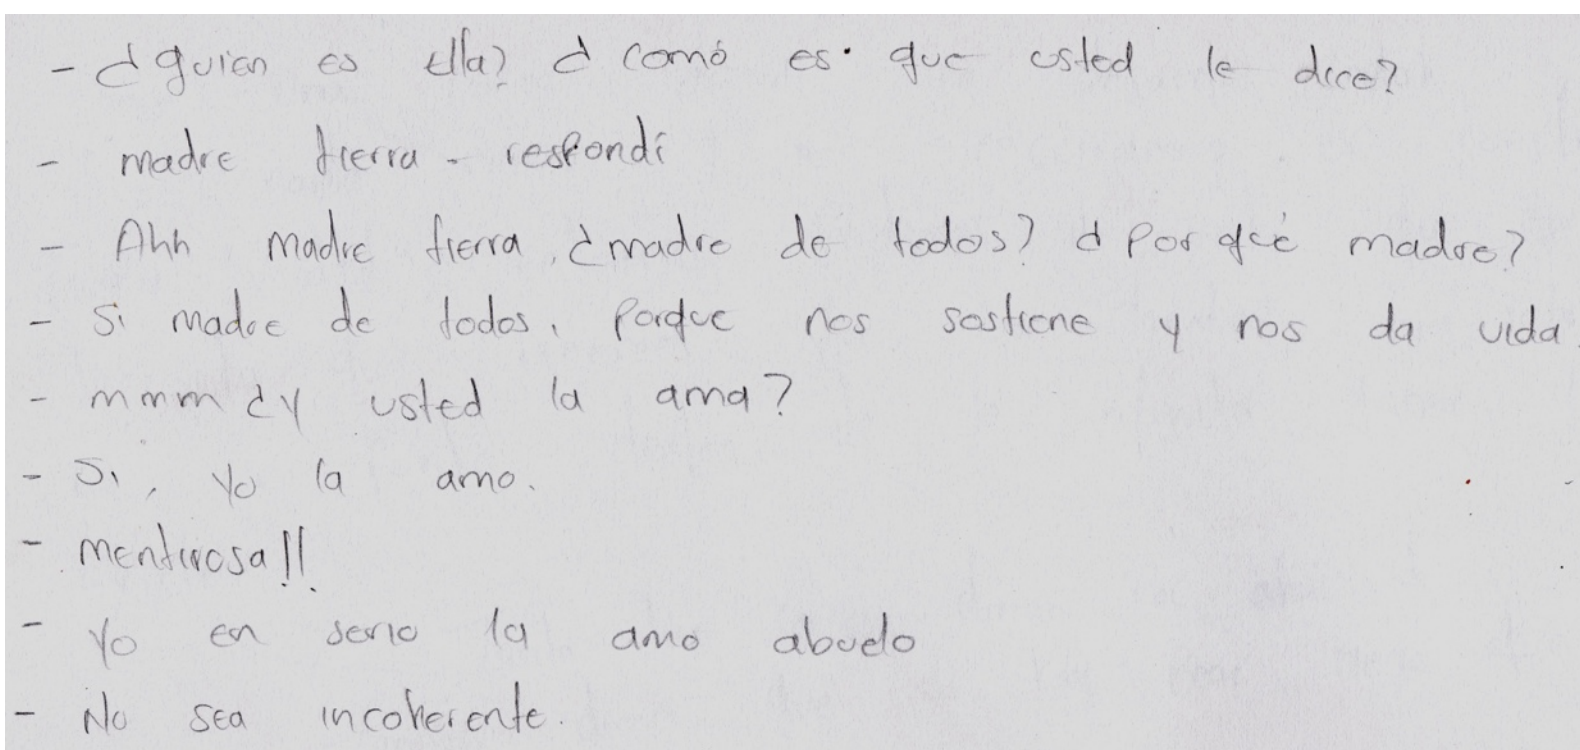 - ¿quien es ella? ¿comó es que usted le dice?
- madre tierra - respondí
- Ahh madre tierra, ¿madre de todos? ¿Por qué madre?
- Si madre de todos, porque nos sostiene y nos da vida.
- mmm ¿y usted la ama?
- Si, yo la amo.
- mentirosa!!
- yo en serio la amo abuelo
- No sea incoherente.